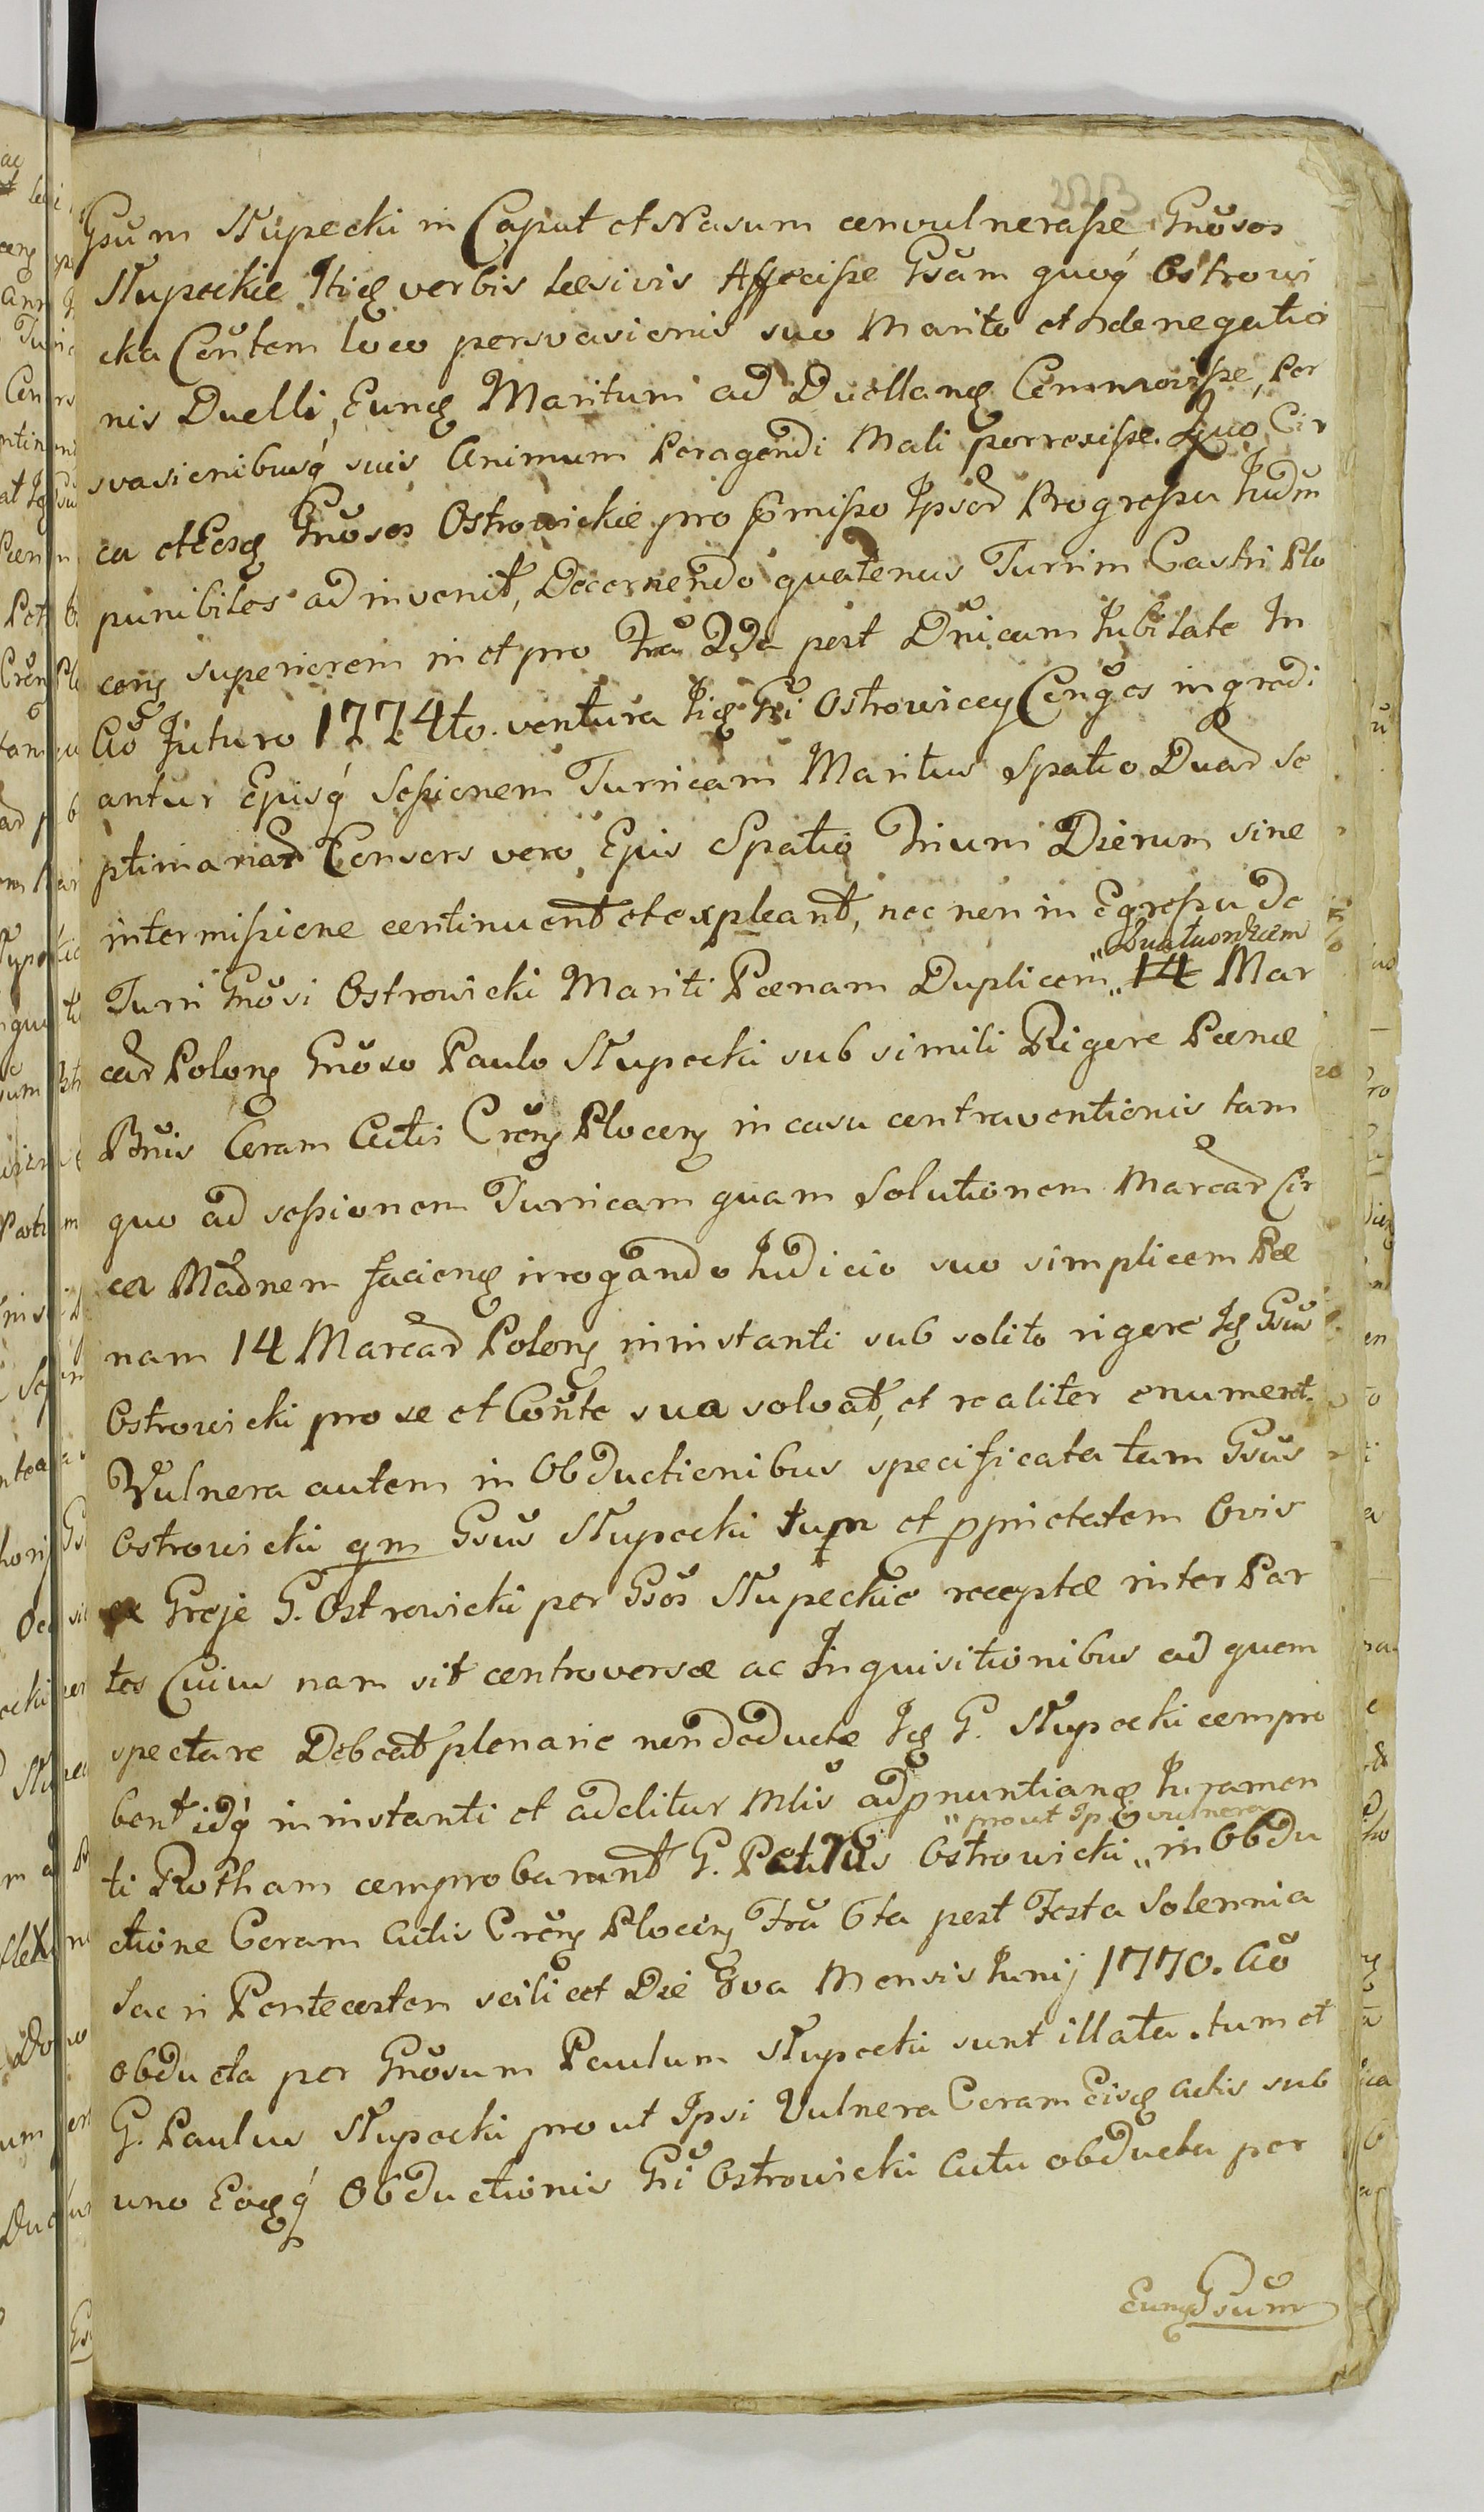 Gsum Słupecki in Caput et Nasum convulnerasse Gnosos
Słupeckie Itidem verbis læsivis Affecisse Gsam quoq́ Ostrowi
cka Contem loco persvasionis suo Marito et denegatio
nis Duelli, Eundem Maritum ad Duellandum Commovisse, Per
svasionibusq́ suis Animum Peragendi Mali porrexisse. Quo Cir
ca eteosdem Gnosos Ostrowickie pro præmisso Ipsor Progressu Judm
punibiles adinvenit, Decernendo quatenus Turrim Castri Plo
cen superiorem in et pro fria 2da post Dnicam Jubilate In
Ao futuro 1774to. ventura Iidem Gsi Ostrowiccy Conges ingredi
antur Ejusq́ Sessionem Turricam Maritus Spatio Duar Se
ptimanar Consors vero Ejus Spatio Trium Dierum sine
intermissione continuent et expleant, nec non in Egressu de
Turri Gnosi Ostrowicki Mariti Pœnam Duplicem „ 14 Mar
„Quatuordecem
car Polon Gnoso Paulo Słupecki sub simili Rigore Pœnæ
Bnis Coram Actis Cren Plocen in casu contraventionis tam
quo ad sessionem Turricam quam Solutionem Marcar Cir
ca Madnem faciendam irrogando Judicio suo simplicem Pœ
nam 14 Marcar Polon in instanti sub solito rigore Idem Gsus
Ostrowicki pro se et Conte sua solvat, et realiter enumeret.
Vulnera autem in Obductionibus specificata tam Gsus
Ostrowicki qm Gsus Słupecki tum et pprietatem Ovis
ex Greje G. Ostrowicki per Gsos Słupeckie receptæ inter Par
tes Cuius nam sit controversæ ac Inquisitionibus ad quem
spectare Debeat plenarie non deductæ Idem G. Słupecki compro
bent idq́ in instanti et additur Mlis adpnuntiandam Juramen
ti Rotham comprobarunt G. Petrus Ostrowicki „ in Obdu
„ prout Ipsi vulnera
ctione Coram Actis Cren Plocen fria 6ta post Festa Solennia
Sacri Pentecosten scilicet Die 8va Mensis Junij 1770. Ao
obducta per Gnosum Paulum Słupecki sunt illata. tum et
G. Paulus Słupecki prout Ipsi Vulnera Coram Eisdem Actis sub
uno Eodemq́ Obductionis Gsi Ostrowicki Actu obducta per
Eundem Gsum